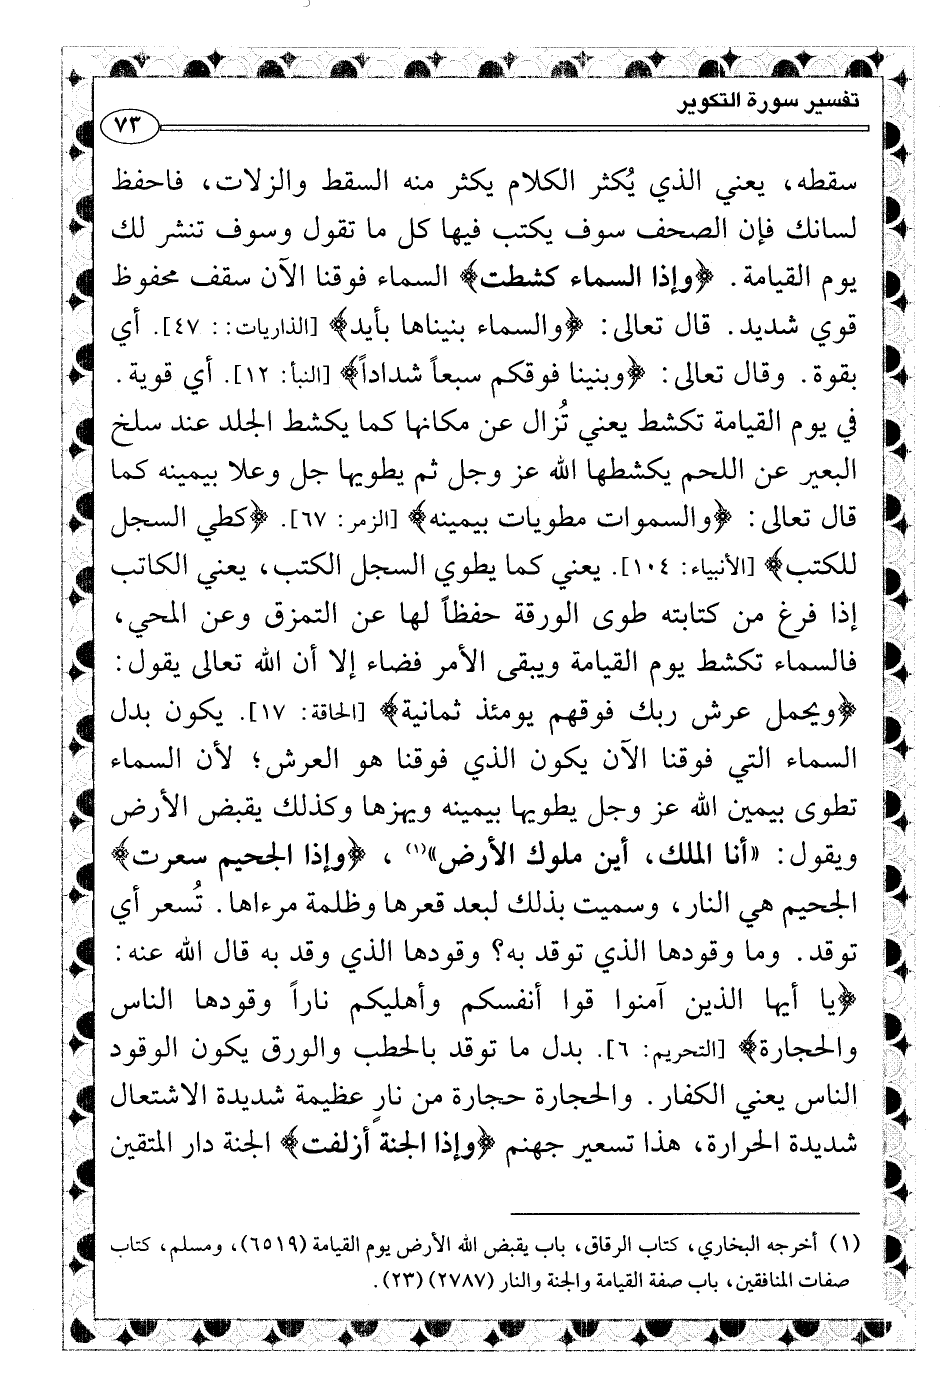 تفسير سورة التكوير
٧٣
سقطه، يعني الذي يُكثر الكلام يكثر منه السقط والزلات، فاحفظ
لسانك فإن الصحف سوف يكتب فيها كل ما تقول وسوف تنشر لك
يوم القيامة. ﴿وإذا السماء كشطت﴾ السماء فوقنا الآن سقف محفوظ
قوي شديد. قال تعالى: ﴿والسماء بنيناها بأيد﴾ [الذاريات:: ٤٧]. أي
بقوة. وقال تعالى: ﴿وبنينا فوقكم سبعاً شداداً﴾ [النبأ: ١٢]. أي قوية.
في يوم القيامة تكشط يعني تُزال عن مكانها كما يكشط الجلد عند سلخ
البعير عن اللحم يكشطها الله عز وجل ثم يطويها جل وعلا بيمينه كما
قال تعالى: ﴿والسموات مطويات بيمينه﴾ [الزمر: ٦٧]. ﴿كطي السجل
للكتب﴾ [الأنبياء: ١٠٤]. يعني كما يطوي السجل الكتب، يعني الكاتب
إذا فرغ من كتابته طوى الورقة حفظاً لها عن التمزق وعن المحي،
فالسماء تكشط يوم القيامة ويبقى الأمر فضاء إلا أن الله تعالى يقول:
﴿ويحمل عرش ربك فوقهم يومئذ ثمانية﴾ [الحاقة: ١٧]. يكون بدل
السماء التي فوقنا الآن يكون الذي فوقنا هو العرش؛ لأن السماء
تطوى بيمين الله عز وجل يطويها بيمينه ويهزها وكذلك يقبض الأرض
ويقول: «أنا الملك، أين ملوك الأرض»(١)، ﴿وإذا الجحيم سعرت﴾
الجحيم هي النار، وسميت بذلك لبعد قعرها وظلمة مرءاها. تُسعر أي
توقد. وما وقودها الذي توقد به؟ وقودها الذي وقد به قال الله عنه:
﴿يا أيها الذين آمنوا قوا أنفسكم وأهليكم ناراً وقودها الناس
والحجارة﴾ [التحريم: ٦]. بدل ما توقد بالحطب والورق يكون الوقود
الناس يعني الكفار. والحجارة حجارة من نارٍ عظيمة شديدة الاشتعال
شديدة الحرارة، هذا تسعير جهنم ﴿وإذا الجنة أزلفت﴾ الجنة دار المتقين
(١) أخرجه البخاري، كتاب الرقاق، باب يقبض الله الأرض يوم القيامة (٦٥١٩)، ومسلم، كتاب
صفات المنافقين، باب صفة القيامة والجنة والنار (٢٧٨٧) (٢٣).